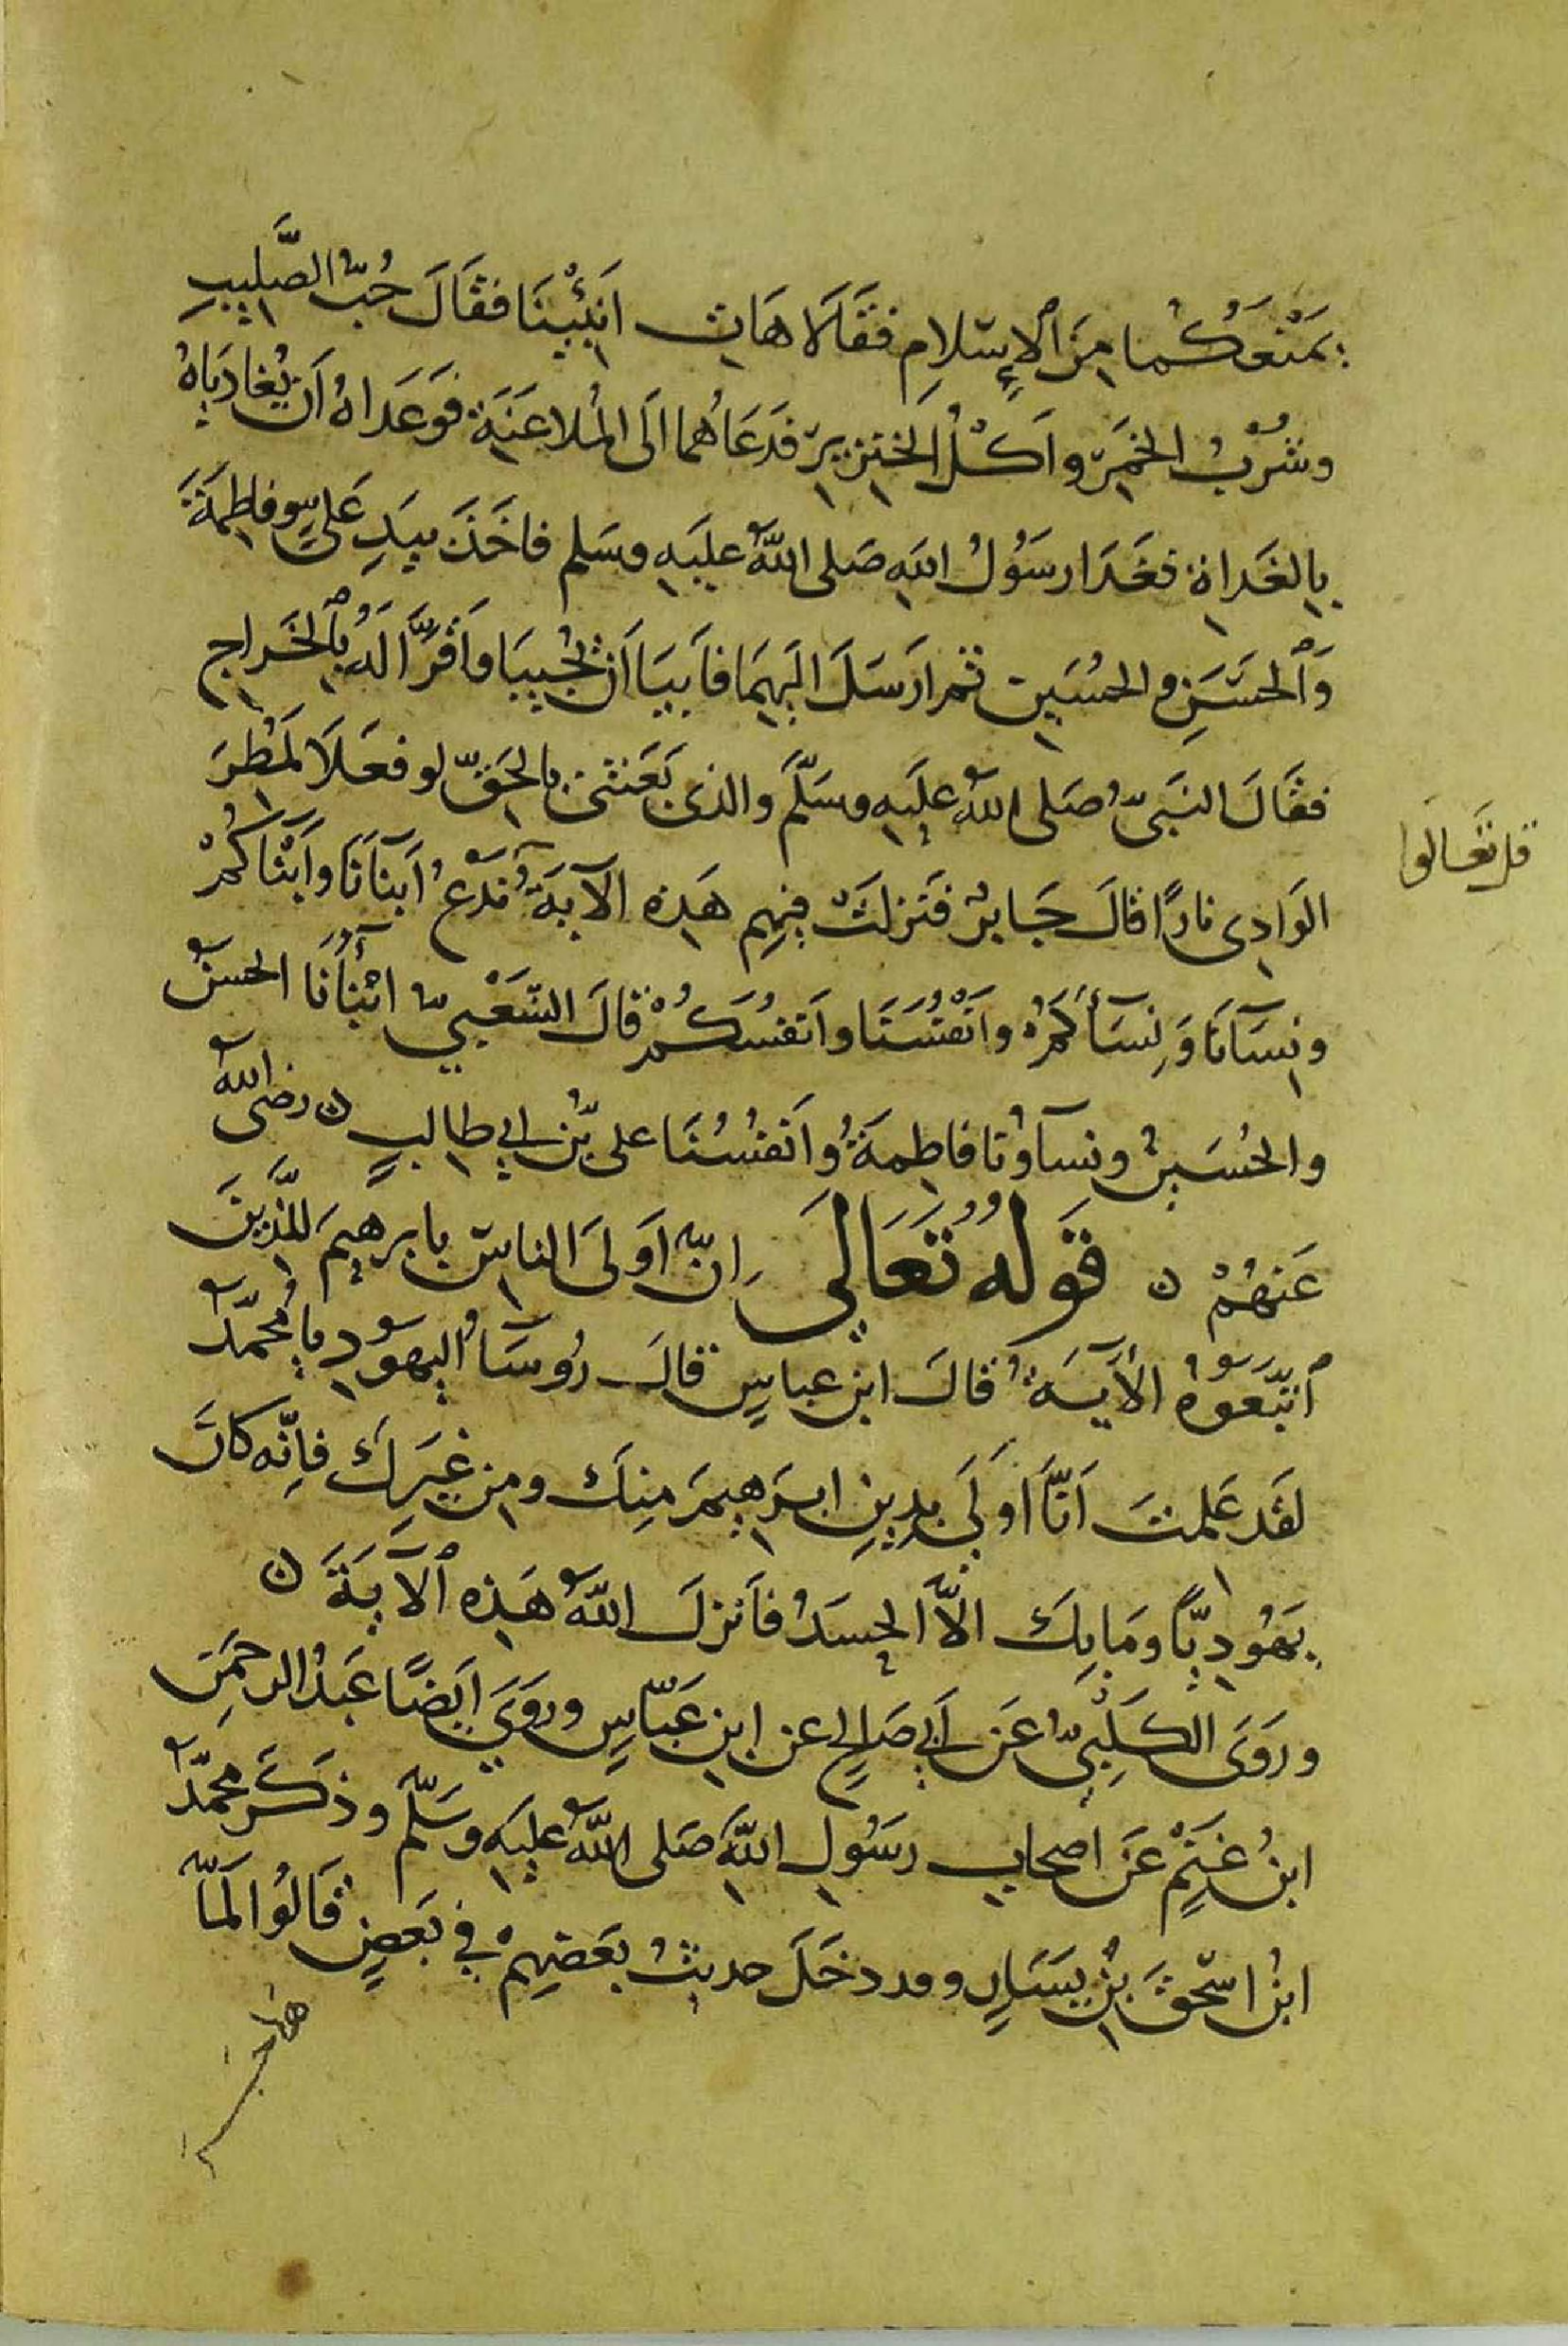 يَمْنَعُكُما مِنَ ٱلإِسْلامِ فقَالَا هَاتِ انَبِّئْنَا فقَالَ حُبُّ الصَّلِيبِ
وشُرْبُ الخَمْرِ واَكْلُ الخِنْزِيرِ فدَعَاهُما الَى المُلاعَنَةِ فَوَعَدَاهُ اَن يُغادِيَاهُ
بِالغَداةِ فغَدَا رسَوُلُ اللهِ صَلى اللهُ عليَهِ وسَلم فاخَذَ بيَدِ عَليٍّ وفاطِمَةَ
وَٱلحَسَنِ والحُسَيِن ثم ارَسَلَ اليَهِمَا فاَبيَا اَن يُجِيبَا وَاَقرَّا لَهُ بٱلخَراجِ
فقَالَ النبَىُّ صَلى اللهُ عليَهِ وسَلَّمَ والذى بَعَثنى بالحَقِّ لو فعَلَا لَمُطِرَ
الوَادِى نارًا قالَ جَابِرٌ فنَزَلَتْ فيهِم هَذِه الآيَةُ نَدْعُ اَبنآءَنَا واَبْنآءَكُمْ
ونِسَآءَنَا وَنِسَآءَكُمْ وانَفْسُنَا واَنفسُكُمْ قالَ الشَعْبيُّ ابْنآؤُنَا الحسنُ
والحُسَينُ ونسآؤُنا فاطِمَةُ واَنفسُنَا على بْن ابي طالبٍ ن رضى اللهُ
عَنهُمْ ن قَولُهُ تَعَالَى اِنَّ اوَلىَ الناسِ بِابرهِيمَ لَلَّذِينَ
ٱتبَّعَوُهُ الآيَةُ قالَ ابن عباسٍ قالَ رُوسَآءُ اليهَوُدِ يا مُحمّدُ
لقَد عَلمتَ اَنَّا اوَلَى بدِينِ ابرَهِيمَ مِنكَ ومِن غيَرِكَ فاِنّه كانَ
يَهُودِيًّا ومَا بِكَ الاَّ الحسَدُ فاَنزلَ اللهُ هَذِه ٱلآيَةَ ن
ورَوَى الكَلْبِيُّ عَن اَبي صَالِحٍ عن ابنِ عَبّاسٍ ورَوَىَ ايَضًا عَبدُ الرحمَنِ
ابنُ غَنْمٍ عَن اصحابِ رسَوُلِ اللهِ صَلى اللهُ عليَهِ وسَلّم وذكَرَ محمّدُ
ابنُ اسحَقَ بْنِ يسَارٍ وقد دخَلَ حديثُ بعَضِهِمْ في بَعضٍ قَالُوا لَمَّا
قل تعَالَوا
هاجر